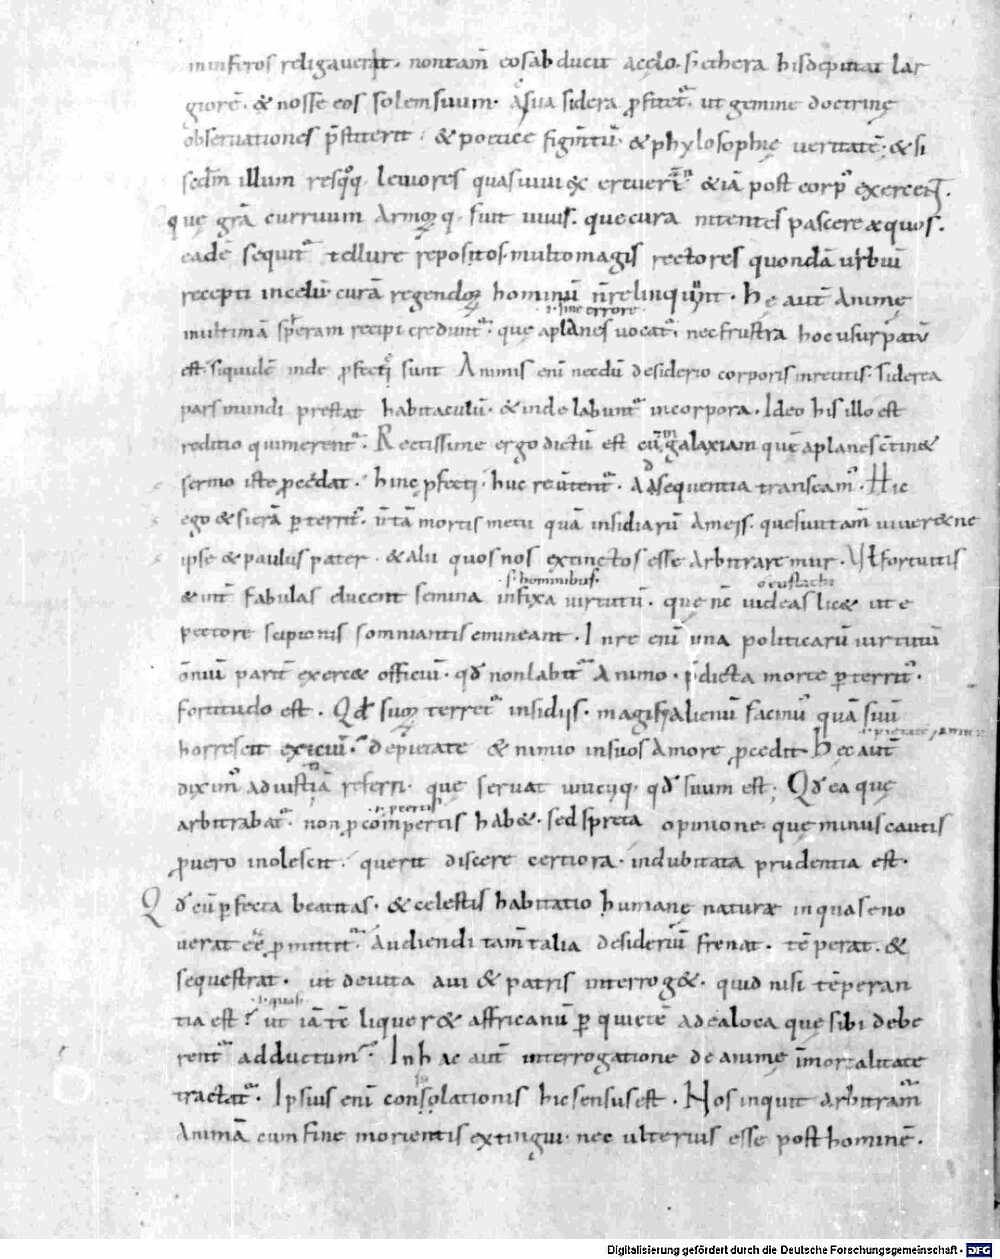 in inferos religauerit. non tam̄ eos abducit a cęlo. sethera his deputat lar
giorē. & nosse eos solem suum. ac sua sidera ꝓfitet̄. ut gemine doctrine
obseruationes p̄stiterit. & poetice figm̄tū. & phylosophię ueritatē. & si
scdm̄ illum res quoq. leuiores quas uiui excertuer̄ & iā post corpꝰ exercent.
quę grā curruum Armorꝝ q. fuit uiuis. quę cura nitentes pascere æquos.
eadē sequit̄ tellure repositos. multo magis rectores quondā urbiū
recepti in celū. curā regendoꝝ hominū n̄ relinquunt. Hę aut̄ Animę
in ultimā sp̄eram recipi credunt̄. que aplanes uocat̄. nec frustra hoc usurpatū
i. sine errore
est. siquidē inde ꝓfecti sunt. Animis enī necdū desiderio corporis inretitis. siderea
pars mundi prestat habitaculū. & inde labunt̄ in corpora. Ideo his illo est
reditio qui merent̄. Rectissime ergo dictū est cū in galaxiam quē aplanes cōtin&
sermo iste ꝓcedat. hinc ꝓfecti. huc reuertent̄. Ad sequentia transeamꝰ. Hic
ego & si erā ꝑterritꝰ. n̄ tā mortis metu quā insidiarū A meis. quesiui tam̄ uiuer& ne
ipse & paulus pater. & alii quos nos extinctos esse Arbitraremur. Vt fortuitis
& int̄ fabulas ducent semina infixa uirtutū. que nc̄ uideas lic& ut e
s. hominibus
o eustachi
pectore scipionis somniantis emineant. In re enī una politicarū uirtutū
ōniū parit̄ exerc& officiū. qd̄ non labit̄ Animo. p̄dicta morte ꝑterritꝰ.
fortitudo est. Qd̄ suoꝝ terret̄ insidiis. magisq; alienū facinꝰ quā suū
horrescit exiciū. de pietate & nimio in suos Amore ꝓcedit. Hec aut̄
diximꝰ ad iustitiā referri. que seruat unicuiq. qd̄ suum est. Qd̄ ea que
arbitrabat̄. non ꝓ compertis hab&. sed spreta opinione. que minus cautis
ꝓ uero inolescit. querit discere certiora. indubitata prudentia est.
Qd̄ cū ꝑfecta beatitas. & celestis habitatio humane naturæ in qua se no
uerat eē ꝓmittit̄. Audiendi tam̄ talia desideriū frenat. tēperat. &
sequestrat. ut de uita aui & patris interrog&. quid nisi tēperan
tia est? ut iā tē liquer& affricanū ꝑ quietē ad ea loca que sibi debe
i. quasi
rent̄ adductum. In hac aut̄ interrogatione de anime īmortalitate
tractat̄. Ipsius enī consolationis hic sensus est. Nos inquit arbitram̄
Animā cum fine morientis extingui. nec ulterius esse post hominē.
Digitalisierung gefördert durch die Deutsche Forschungsgemeinschaft - DFG